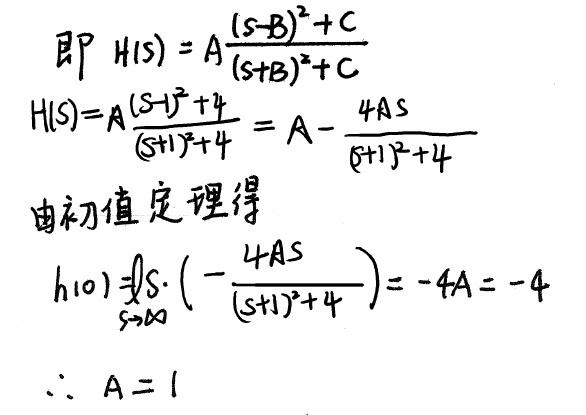 即 H(s) = A \frac{(s-B)^2+C}{(s+B)^2+C}
H(s) = A \frac{(s-1)^2+4}{(s+1)^2+4} = A - \frac{4As}{(s+1)^2+4}
由初值定理得
h(0) = l_{s→∞} s·(-\frac{4As}{(s+1)^2+4}) = -4A = -4
∴ A = 1